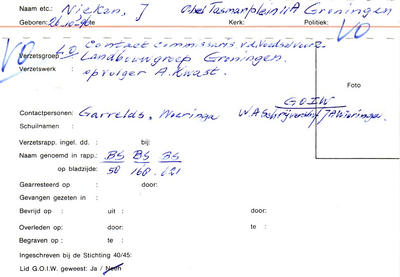 Naam etc.: Nieken, J Abel Tasmanplein 11A Groningen
Geboren: 26.10.96 te Kerk: Politiek:
VO VO
Verzetsgroep: LO Contact commissaris v.d. Voedselvoorz.
Verzetswerk : Landbouwgroep Groningen.
opvolger A. Kwast.
Foto
GOIW
Contactpersonen: Garrelds, Wieringa W.A. Schrijvershof J.P. Wieringa
Schuilnaam :
Verzetsrapp. ingel. dd. : bij:
Naam genoemd in rapp.: BS BS BS
op bladzijde: 50 160 621
Gearresteerd op : door:
Gevangen gezeten in :
Bevrijd op : uit : door:
Overleden op: door: te :
Begraven op : te :
Ingeschreven bij de Stichting 40/45:
Lid G.O.I.W. geweest: Ja / Neen